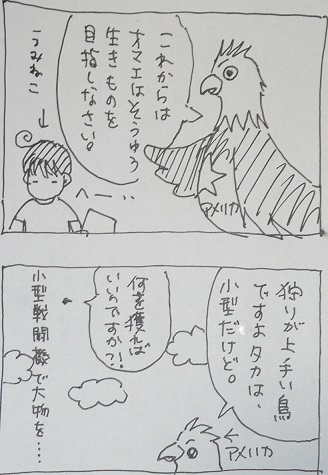 これからは
オマエはそうゆう
生きものを
目指しなさい。
うみねこ
へー…
アメリカ
狩りが上手い鳥
ですよタカは、
小型だけど。
何を獲れば
いいんですか?!
小型戦闘機で大物を…
アメリカ